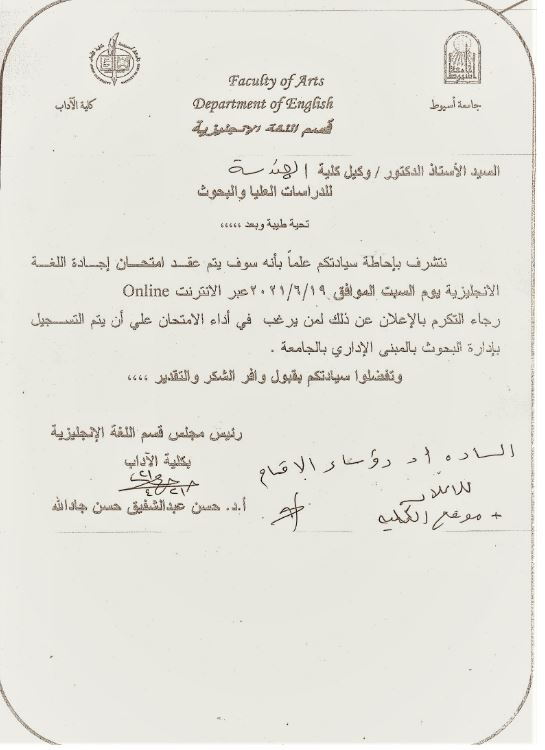 Faculty of Arts
Department of English
كلية الآداب
جامعة أسيوط
قسم اللغة الإنجليزية
السيد الأستاذ الدكتور / وكيل كلية الهندسة
للدراسات العليا والبحوث
تحية طيبة وبعد ،،،،،
نتشرف بإحاطة سيادتكم علماً بأنه سوف يتم عقد امتحان إجادة اللغة
الانجليزية يوم السبت الموافق ٢٠٢١/٦/١٩ عبر الانترنت Online
رجاء التكرم بالإعلان عن ذلك لمن يرغب في أداء الامتحان علي أن يتم التسجيل
بإدارة البحوث بالمبنى الإداري بالجامعة .
وتفضلوا سيادتكم بقبول وافر الشكر والتقدير ،،،،
رئيس مجلس قسم اللغة الإنجليزية
بكلية الآداب
أ.د. حسن عبدالشفيق حسن جادالله
الساده أ.د رؤساء الاقسام
للاعلان
+ موقع الكلية